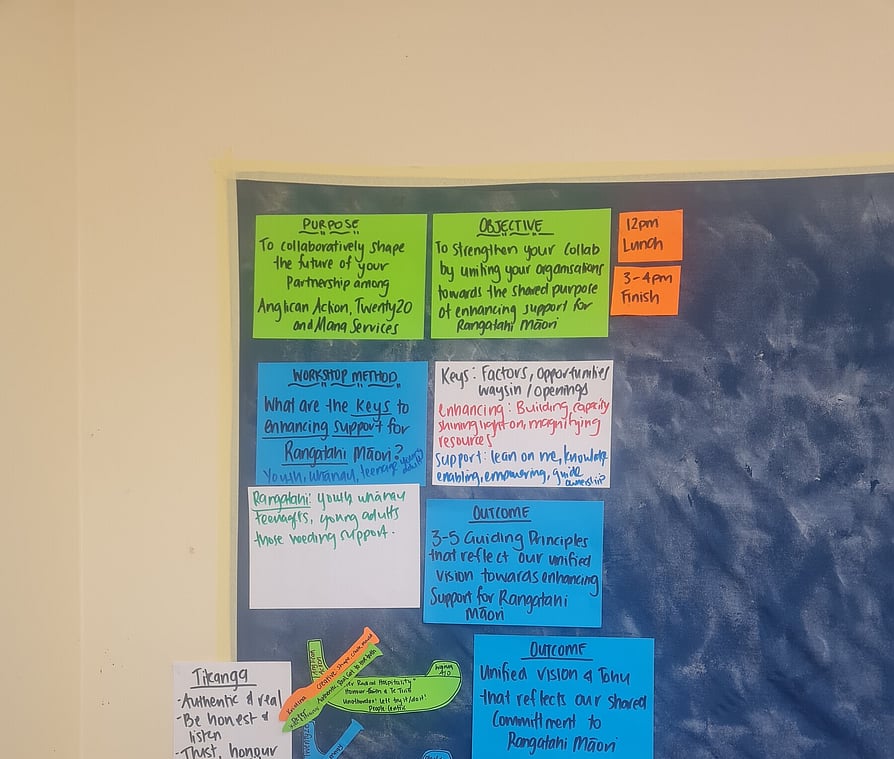 PURPOSE
To collaboratively shape
the future of your
Partnership among
Anglican Action, Twenty20
and Mana Services
OBJECTIVE
To strengthen your Collab
by uniting your organisations
towards the shared purpose
of enhancing support for
Rangatahi Māori
12pm
Lunch
3-4pm
Finish
WORKSHOP METHOD
What are the keys to
enhancing support for
Rangatahi Māori?
Youth, whānau, teenage young
adults
Keys: Factors, opportunities
waysin / openings
enhancing: Building, capacity
shining light on, magnifying
resources
Support: lean on me, knowledge
enabling, empowering, guide
ownership
Rangatahi: youth whānau
teenagers, young adults
those needing support.
OUTCOME
3-5 Guiding Principles
that reflect our unified
vision towards enhancing
Support for Rangatahi
Māori
OUTCOME
Unified vision & Tohu
that reflects our shared
Committment to
Rangatahi Māori
Tikanga
-Authentic & real
-Be honest &
listen
-Trust, honour
Kristina
Radical Hospitality"
People